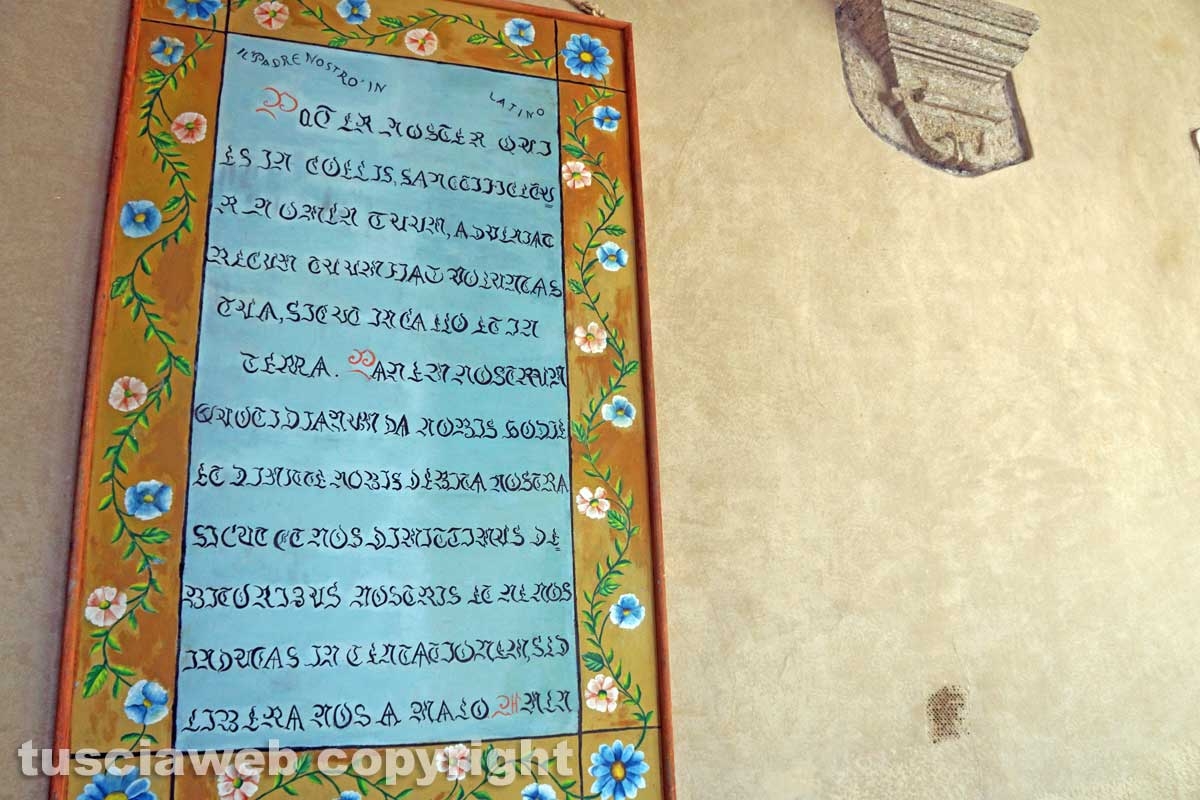 IL PADRE NOSTRO IN LATINO
PATER NOSTER QUI
ES IN COELIS, SANCTIFICETU
R NOMEN TUUM, ADVENIAT
REGUM TUUM FIAT VOLUNTAS
TUA, SICUT IN CAELO ET IN
TERRA. PANEM NOSTRUM
QUOTIDIANUM DA NOBIS HODIE
ET DIMITTE NOBIS DEBITA NOSTRA
SICUT ET NOS DIMITTIMUS DE
BITORIBUS NOSTRIS ET NE NOS
INDUCAS IN TENTATIONEM, SED
LIBERA NOS A MALO AMEN
tusciaweb copyright